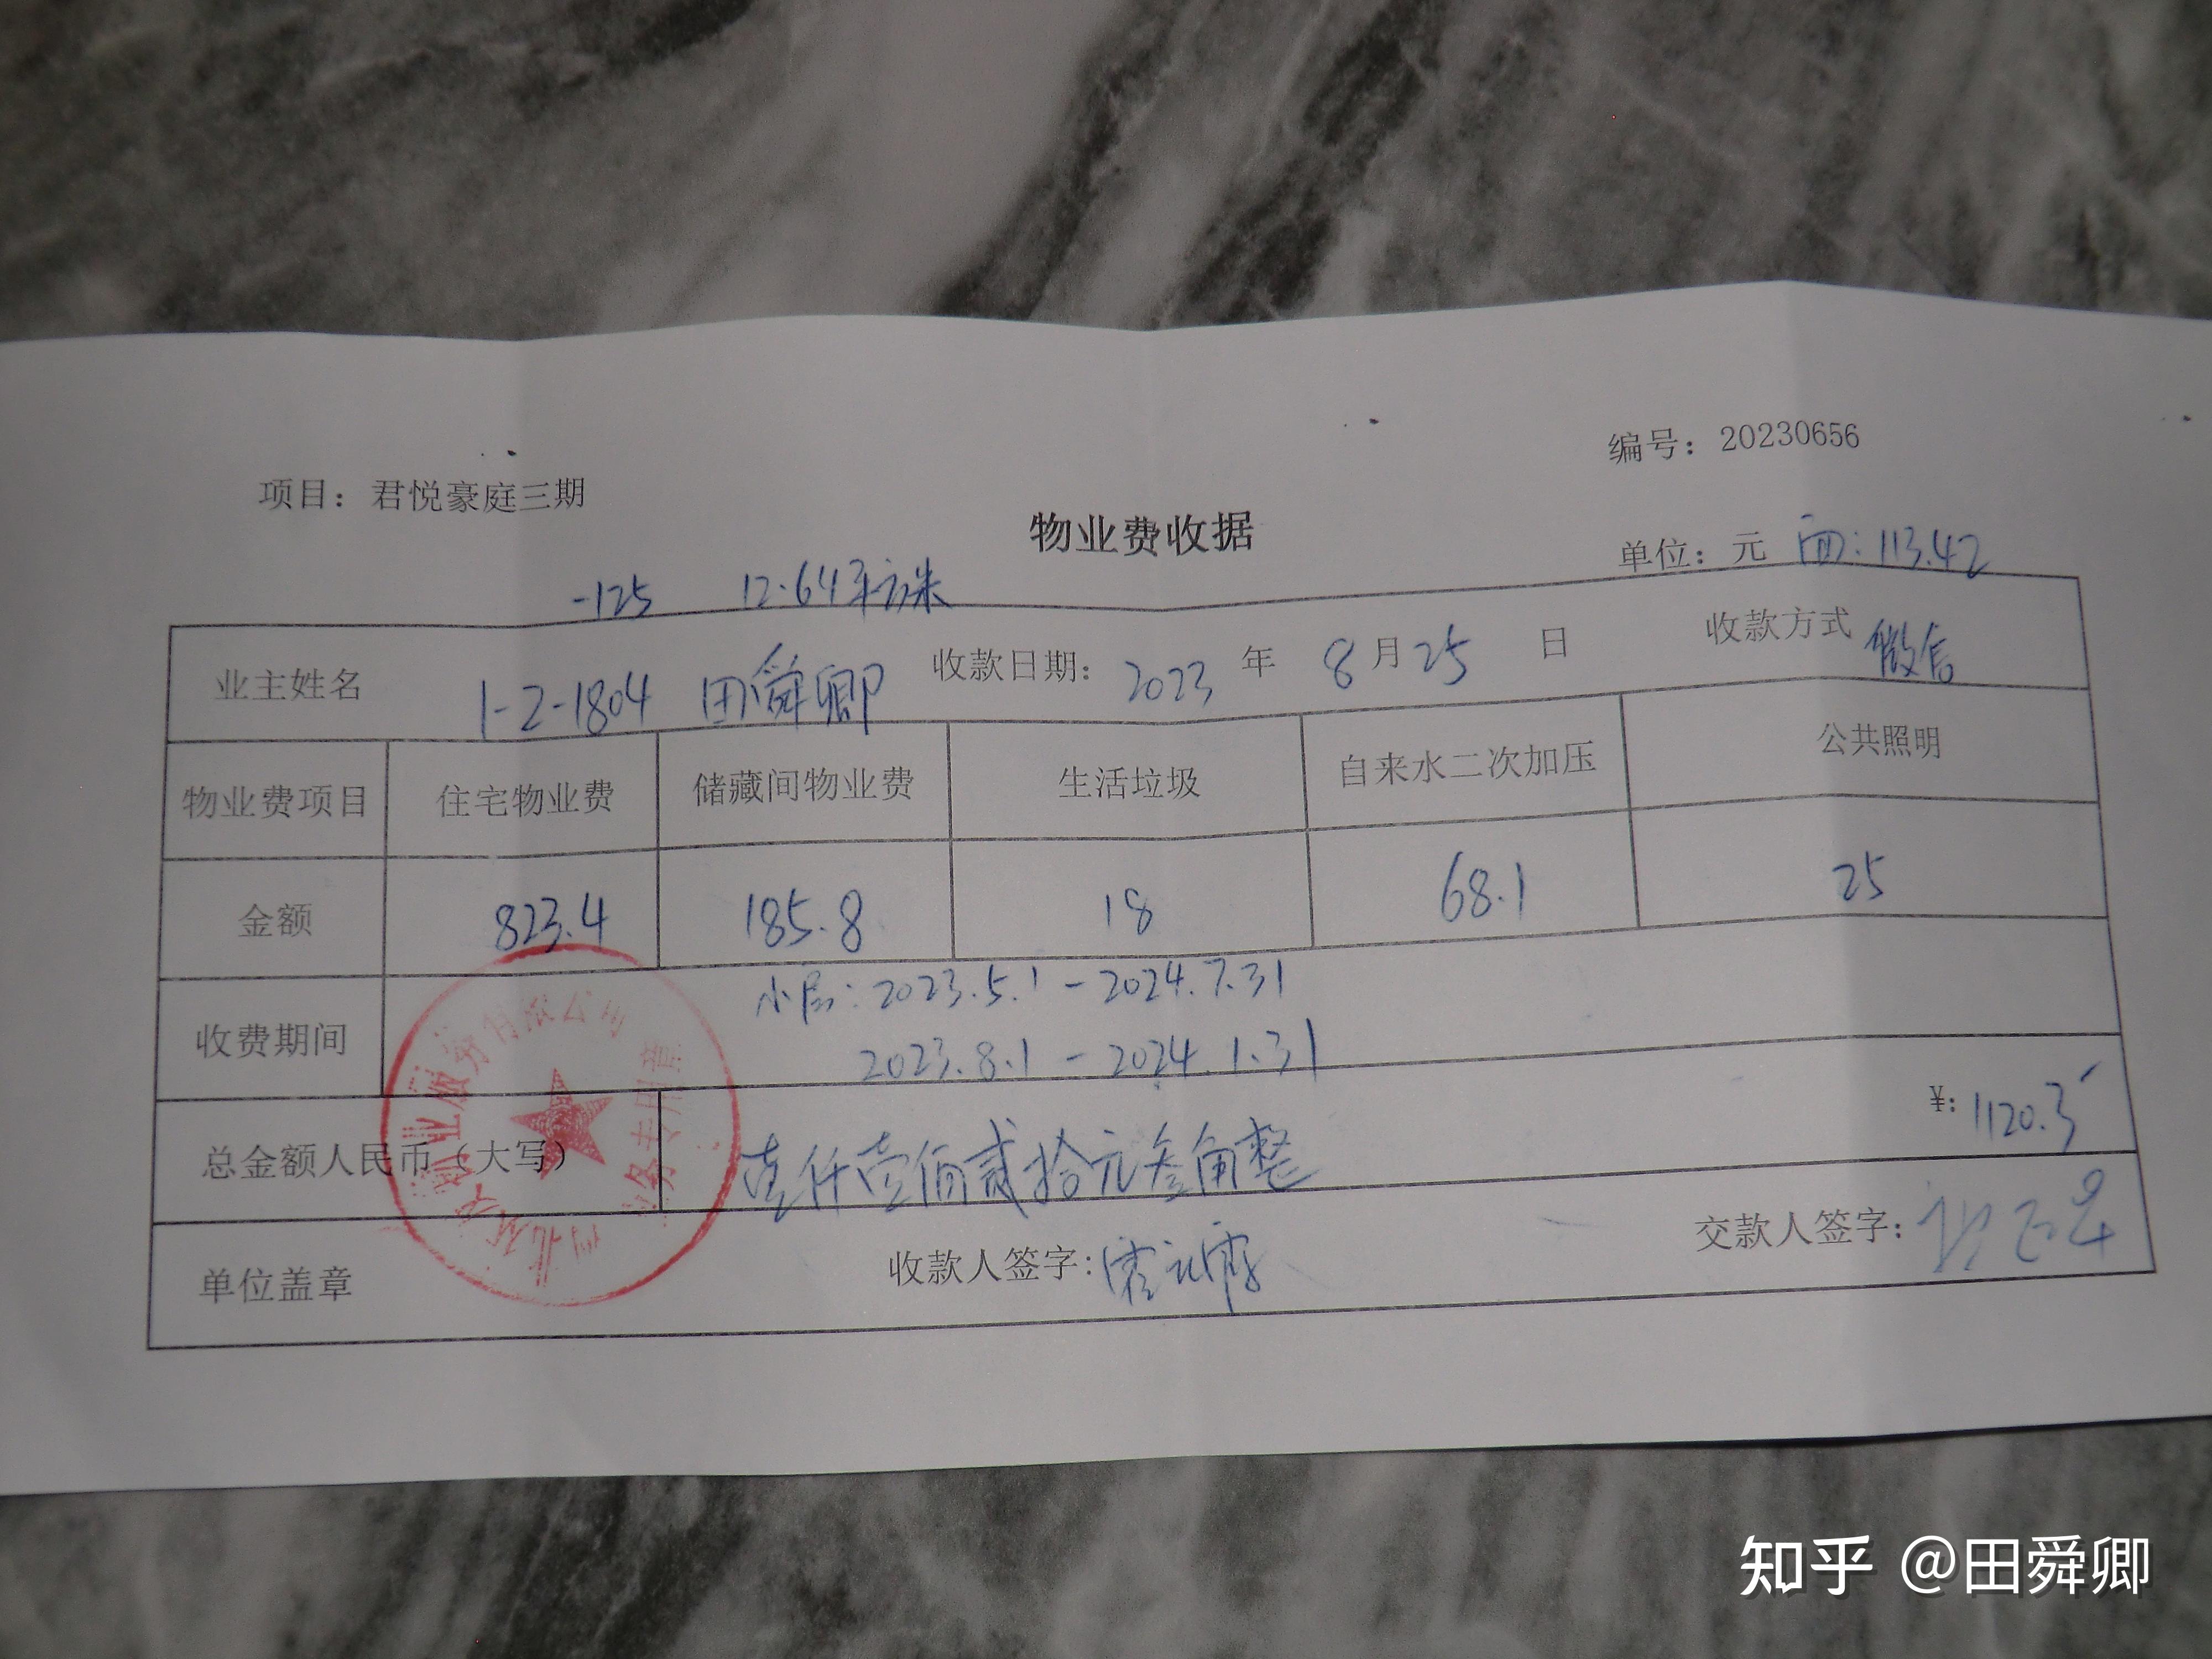 编号：20230656
项目：君悦豪庭三期
物业费收据
单位：元 面：113.42
-125 12.64平方米
业主姓名 1-2-1804 田舜卿 收款日期：2023年8月25日 收款方式 微信
物业费项目 住宅物业费 储藏间物业费 生活垃圾 自来水二次加压 公共照明
金额 823.4 185.8 18 68.1 25
收费期间 小房：2023.5.1-2024.7.31
2023.8.1-2024.1.31
总金额人民币（大写） 壹仟壹佰贰拾元叁角整 ¥：1120.3
单位盖章 收款人签字： 交款人签字：
物业服务有限公司
业务专用章
知乎 @田舜卿